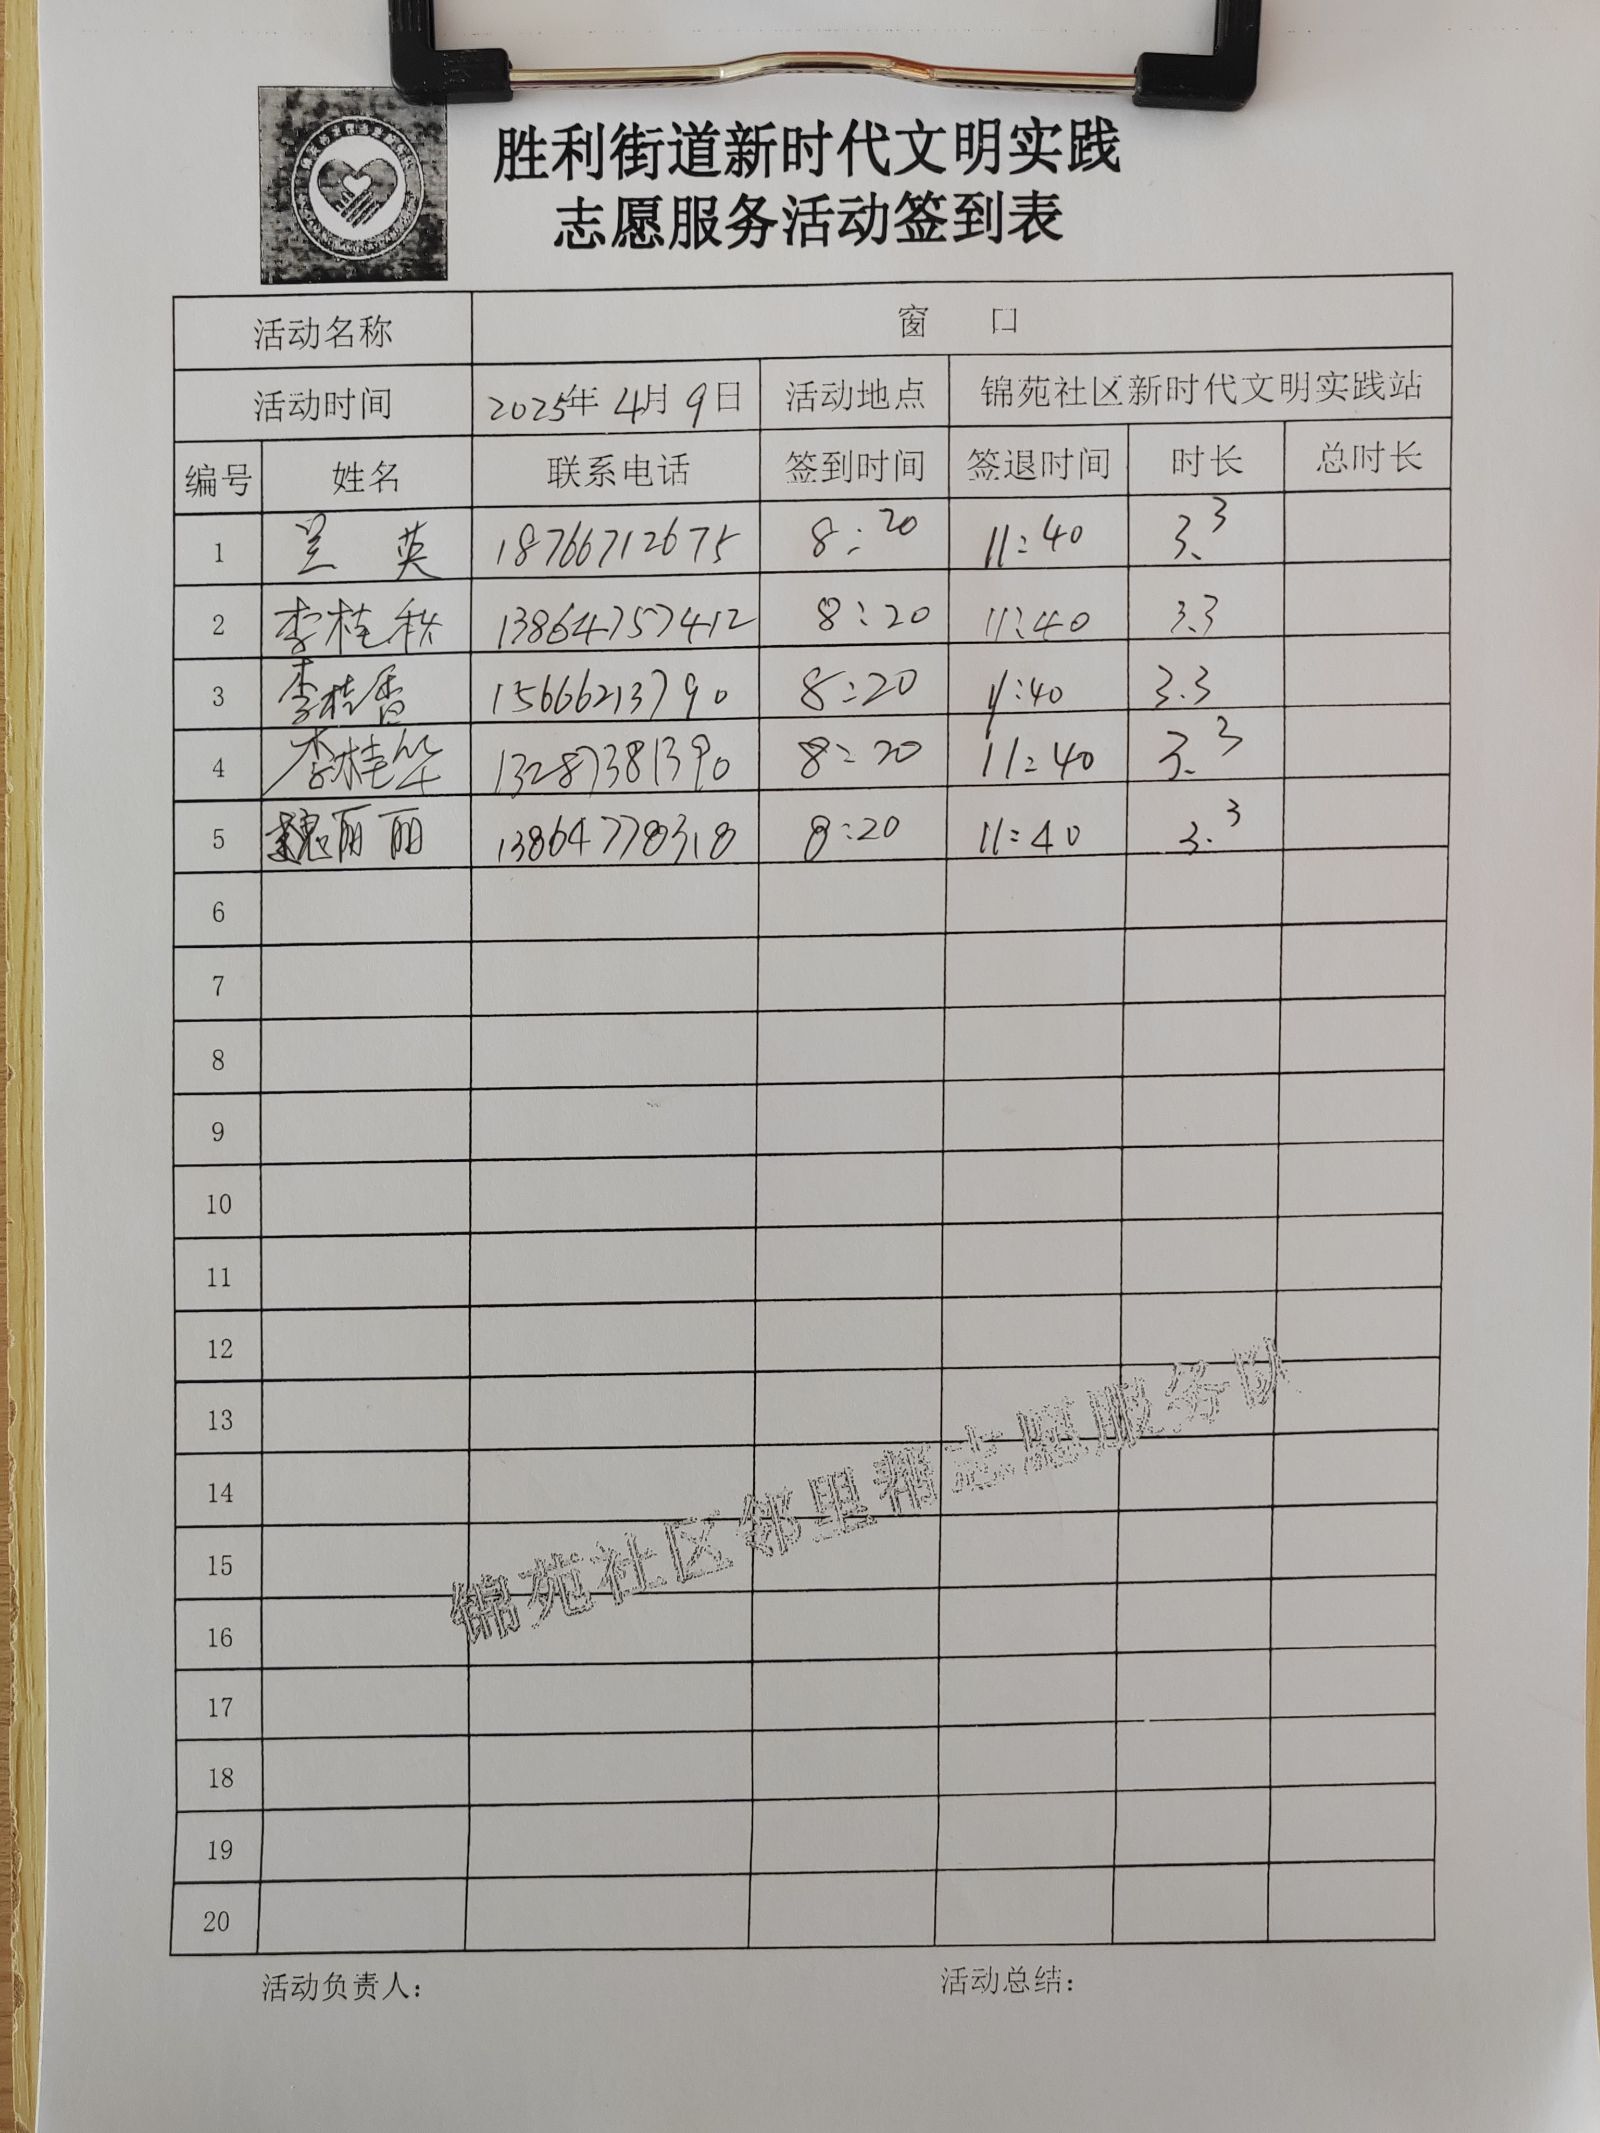 胜利街道新时代文明实践
志愿服务活动签到表
活动名称 窗 口
活动时间 2025年4月9日 活动地点 锦苑社区新时代文明实践站
编号 姓名 联系电话 签到时间 签退时间 时长 总时长
1 英 18766712675 8:20 11:40 3.3
2 李桂秋 13864757412 8:20 11:40 3.3
3 李桂香 15666213790 8:20 11:40 3.3
4 李桂华 13287381390 8:20 11:40 3.3
5 魏丽丽 13864778318 8:20 11:40 3.3
6
7
8
9
10
11
12
13
14
15
16
17
18
19
20
锦苑社区邻里帮志愿服务队
活动负责人： 活动总结：